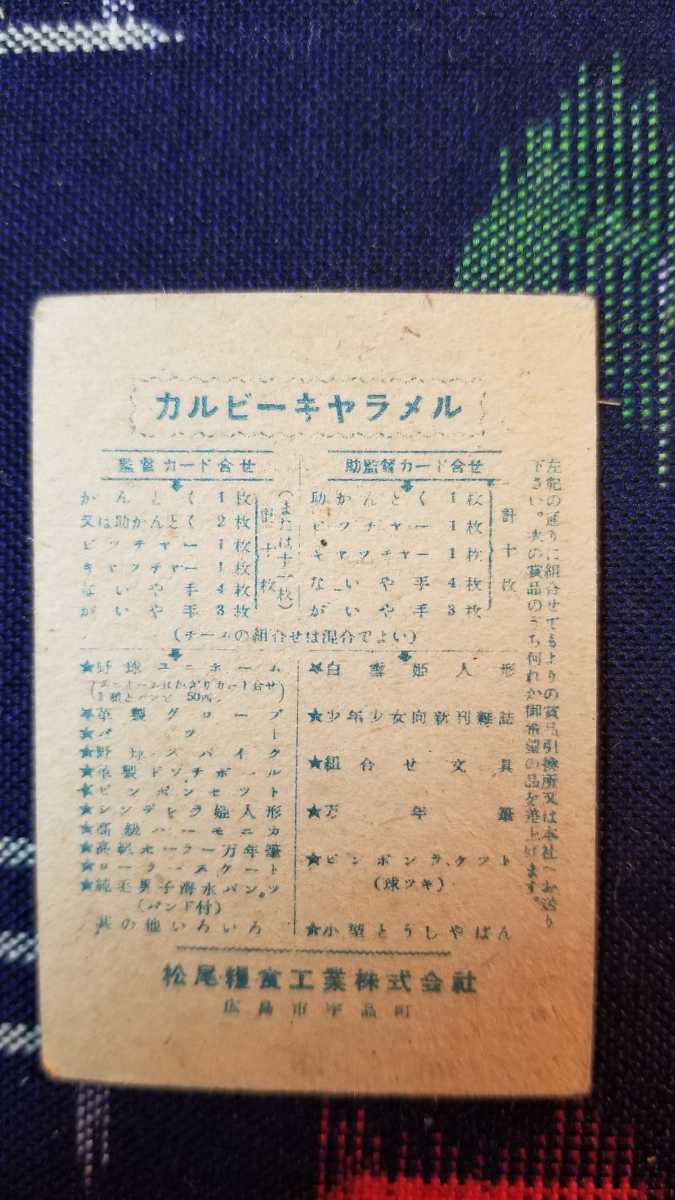 カルビーキャラメル
監督カード合せ
かんとく 1枚
又は助かんとく 2枚
ピッチャー 1枚
キャッチャー 1枚
ないや手 4枚
がいや手 3枚
計十枚
(または十一枚)
助監督カード合せ
助かんとく 1枚
ピッチャー 1枚
キャッチャー 1枚
ないや手 4枚
がいや手 3枚
計十枚
(チームの組合せは混合でよい)
★野球ユニホーム
(ユニホームにかぎりカード合せ
★革製グローブ
★バット
★野球スパイク
★革製ドッチボール
★ピンポンセット
★シンデレラ姫人形
★高級ハーモニカ
★高級ボーラー万年筆
★ローラースケート
★純毛男子海水パンツ
(バンド付)
其の他いろいろ
★白雪姫人形
★少年少女向新刊雑誌
★組合せ文具
★万年筆
★ピンポンラケット
(球ツキ)
★小型とうしやばん
左記の通りに組合せてもよりの賞品引換所又は本社へお送り
下さい。次の賞品のうち何れか御希望の品を差上げます。
松尾糧食工業株式会社
広島市宇品町